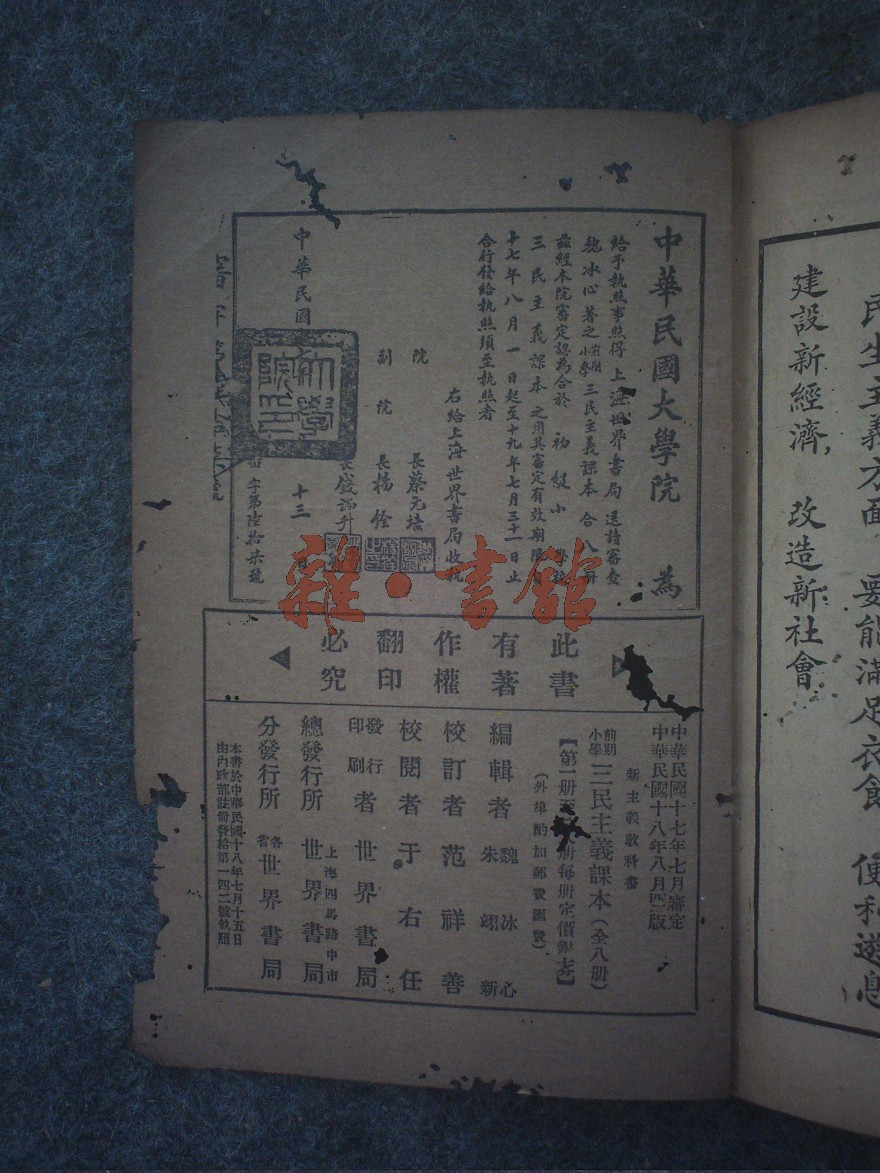 民生主義方面 要能滿足衣飾 便利遊息
建設新經濟, 改造新社會
中華民國大學院 為
給予執照事照得上海世界書局送請審查
魏冰心著之前期小學三民主義課本合八冊
茲經本院審定認為合於初級小學校
三民主義課本之用其審定有效期限自
十七年八月一日起至十九年七月三十一日止
合行發給執照須至執照者
右給上海世界書局收執
院長蔡元培
副院長楊銓
長盛 升
中華民國 十三
字第陸拾柒號
大學院印
雜·書館
此書
有著
作權
翻印
必究
中華民國十七年七月審定
中華民國十八年八月四版
新主義教科書
前期小學三民主義課本(全八冊)
【第一冊至 冊每冊定價 】
(外埠酌加郵費匯費)
編輯者 魏冰心 朱翊新
校訂者 范祥善
校閱者 于右任
印刷發行者 世界書局
總發行所 上海四馬路中市 世界書局
分發行所 各省世界書局
本書於中華民國十八年七月十五日
由內政部註冊發給第一四二號執照